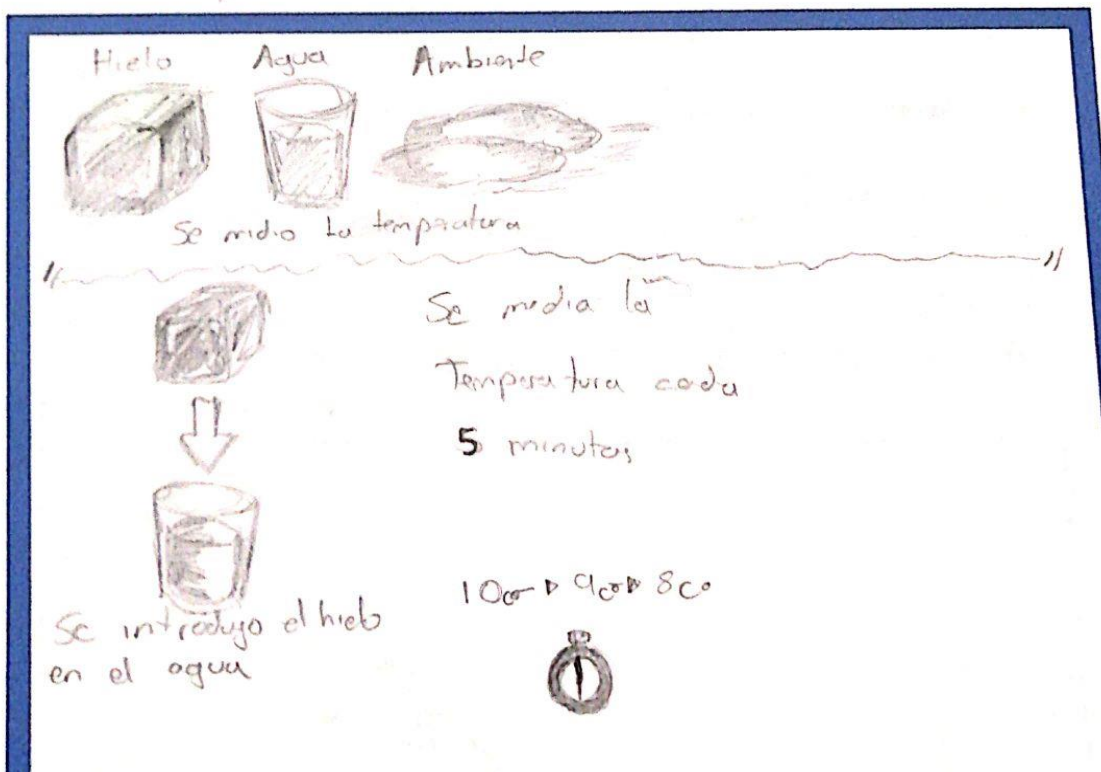 Hielo Agua Ambiente
Se midio la temperatura
Se media la
Temperatura cada
5 minutos
10c° 9c° 8c°
Se introdujo el hielo
en el agua